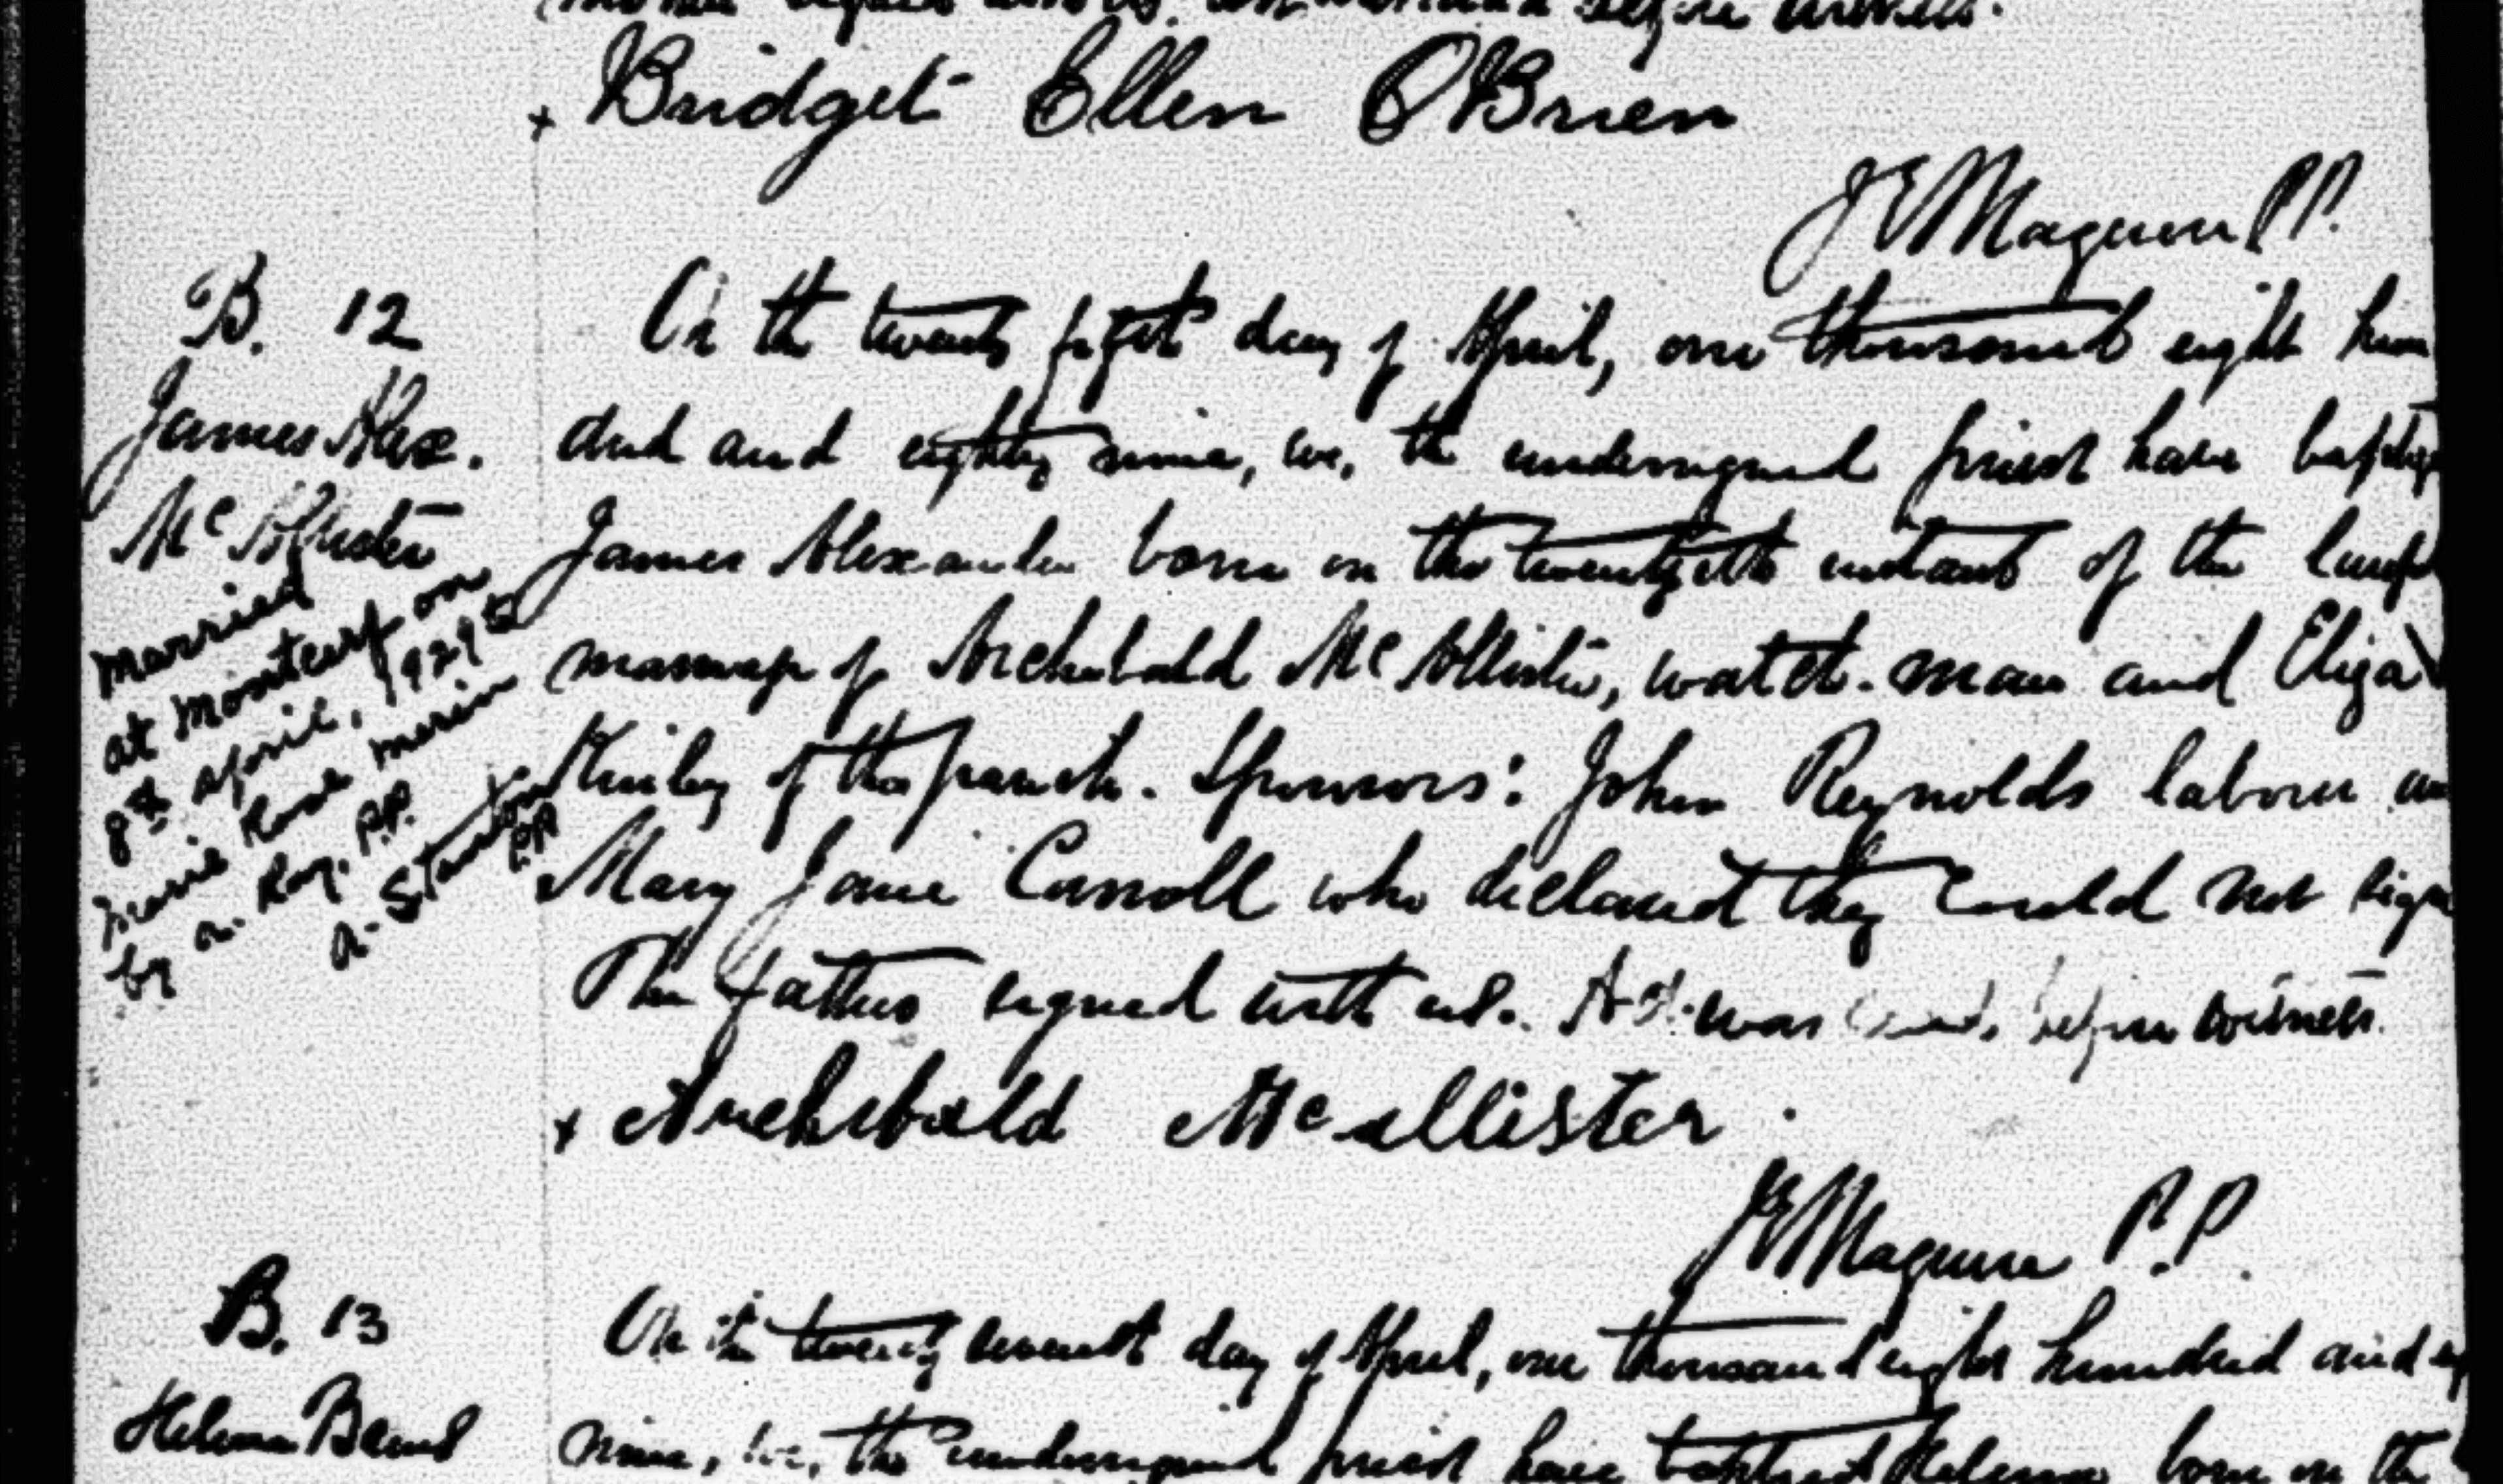 mother signed
before witness.
x Bridget Ellen O'Brien
J E Maguire P P.
B. 12
James Alex.
McAllister
Married
at Montcerf on
8th april, 1929 to
Marie Rose Morin
by a. Roy. P.P.
A. Stanton
P.P.
On the twenty fifth day of April, one thousand eight hun
dred and eighty nine, we, the undersigned priest have baptiz
James Alexander born on the twentyeth instant of the lawf
marriage of Archebald McAllister, watch-man and Eliza
of this parish. Sponsors: John Reynolds labour an
Mary Jane Carroll who declared they could not sign
The father signed with us. was before witness.
x Archibald McAllister.
J E Maguire P.P.
B. 13
Helena
On the twenty seventh day of April, one thousand eight hundred and eig
nine, we, the undersigned priest have baptised Helena born on the